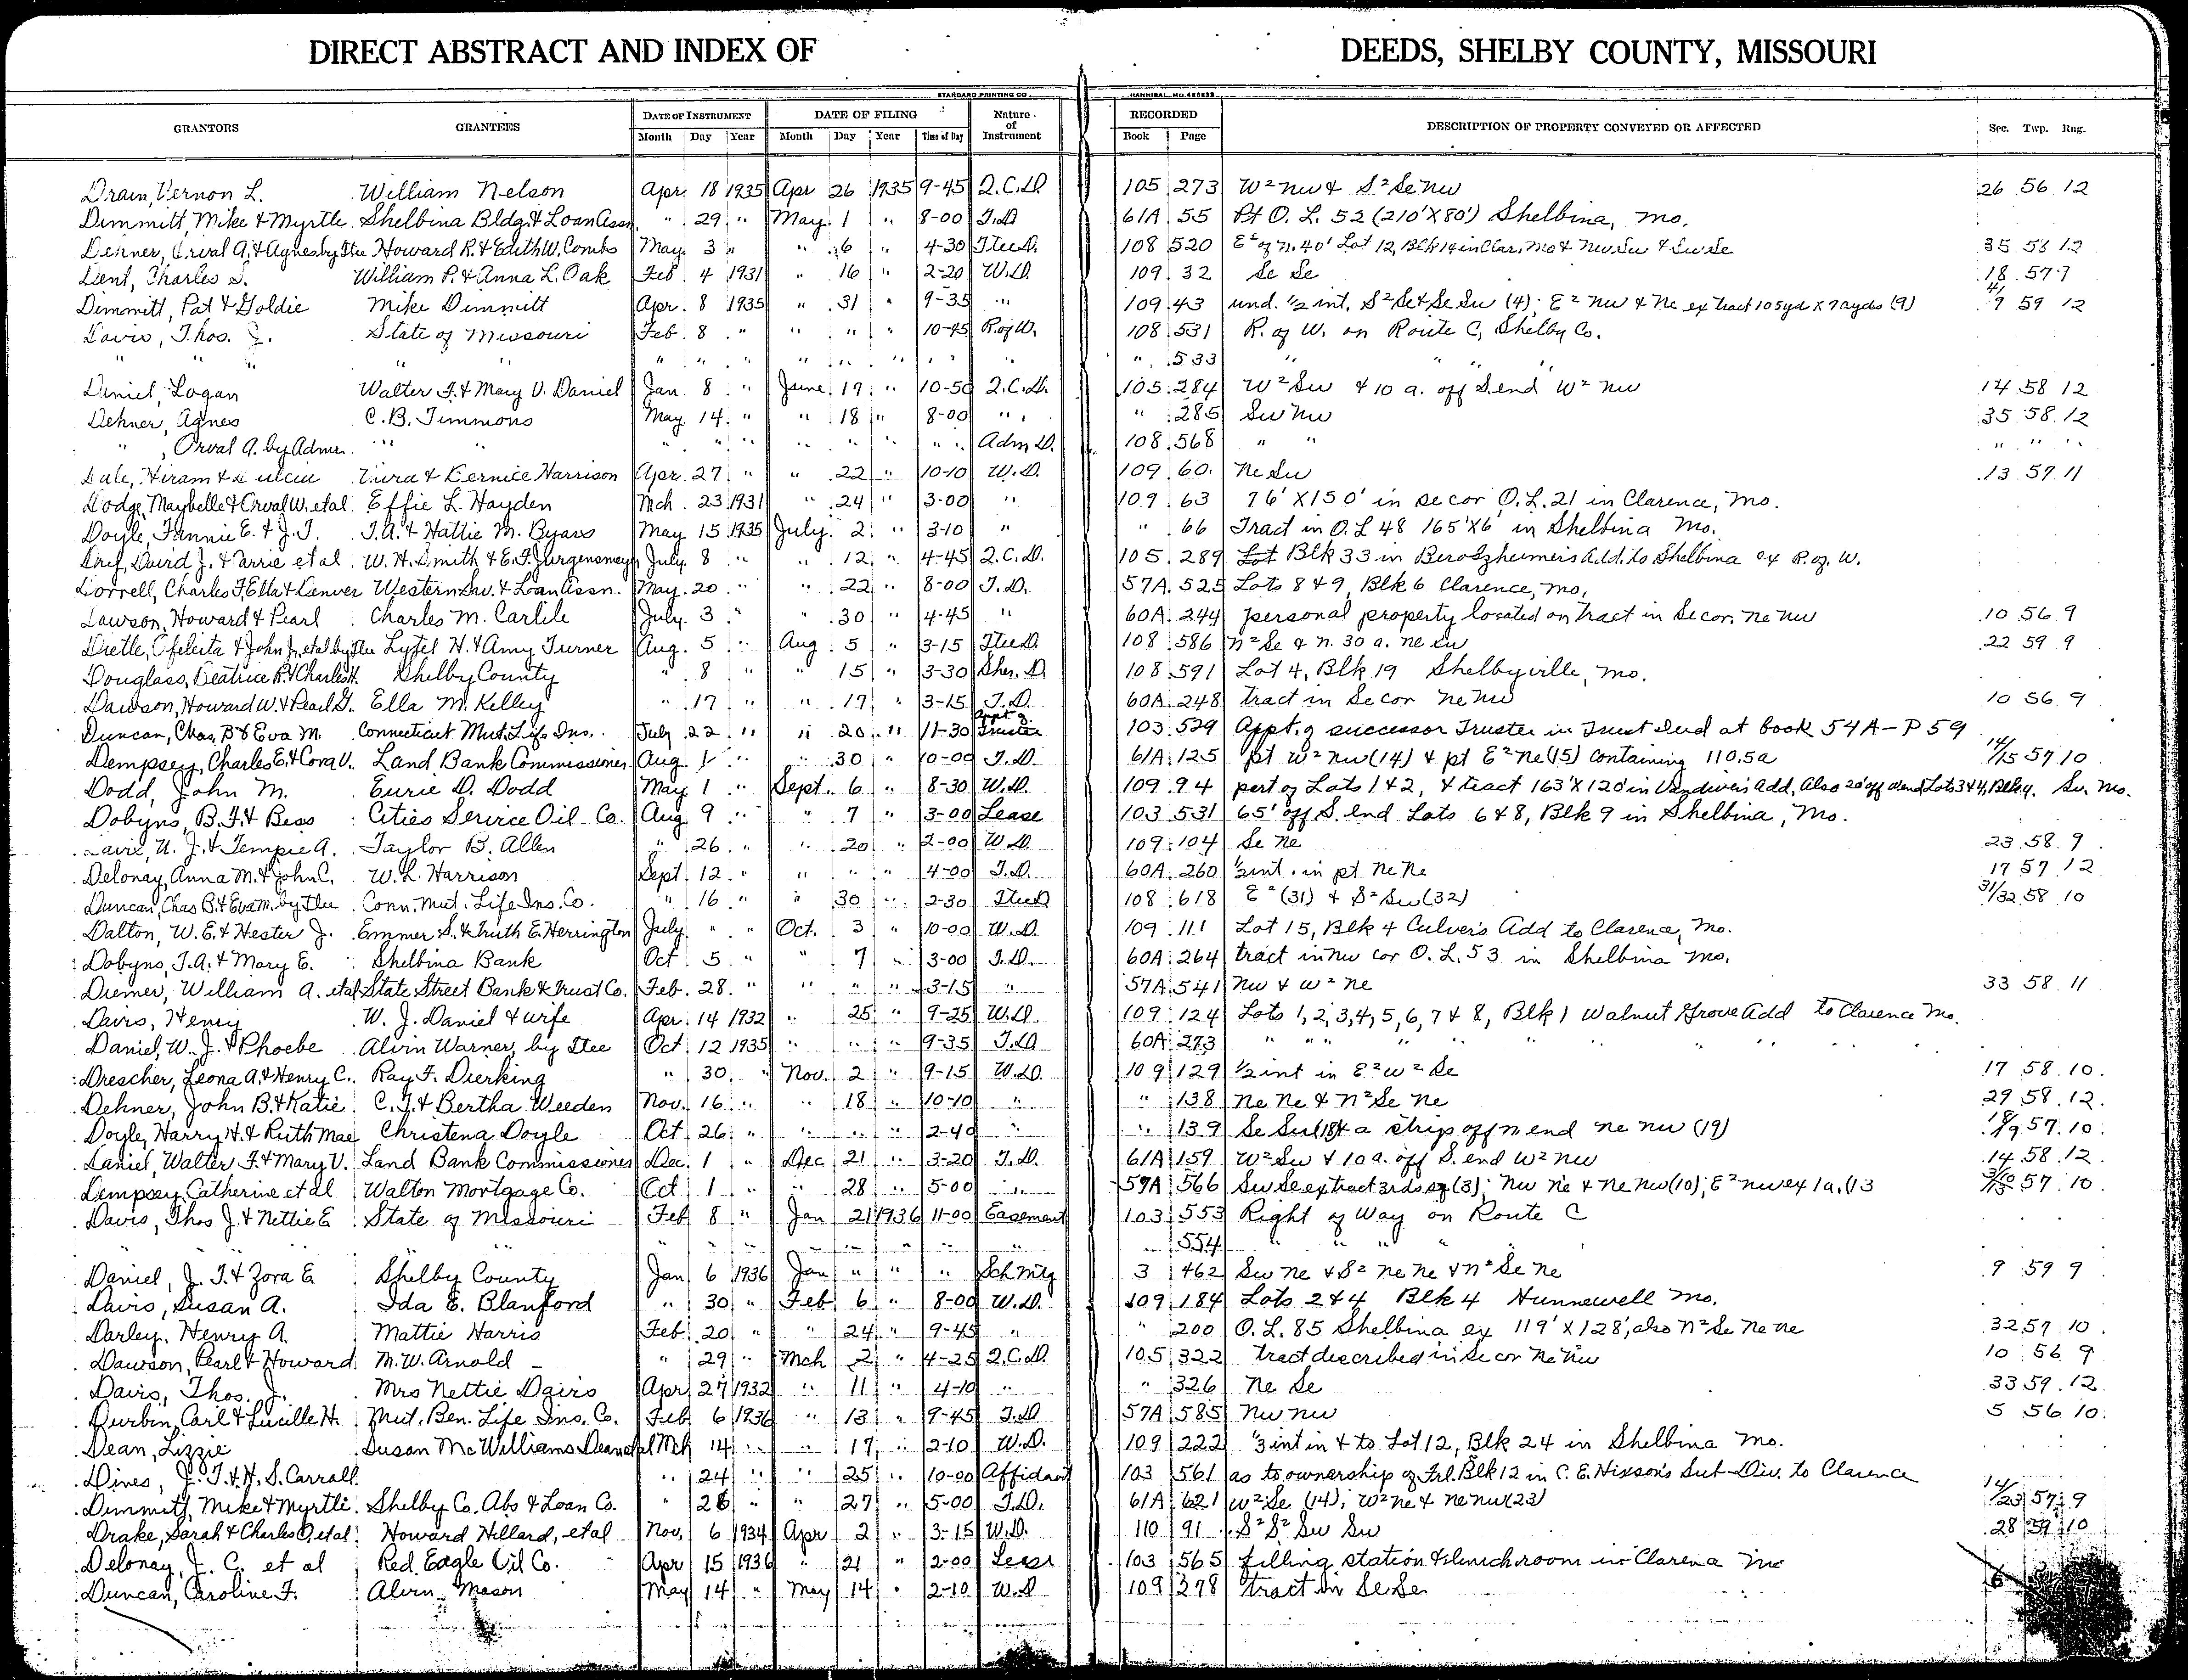 DIRECT ABSTRACT AND INDEX OF DEEDS, SHELBY COUNTY, MISSOURI
STANDARD PRINTING CO. HANNIBAL, MO.
GRANTORS GRANTEES DATE OF INSTRUMENT DATE OF FILING Nature of Instrument RECORDED DESCRIPTION OF PROPERTY CONVEYED OR AFFECTED Sec. Twp. Rng.
Month Day Year Month Day Year Time of Day Book Page
Drain, Vernon L. William Nelson Apr. 18 1935 Apr 26 1935 9-45 Q.C.D. 105 273 W² NW & S² SE NW 26 56 12
Dimmitt, Mike & Myrtle Shelbina Bldg. & Loan Assn. " 29 " May 1 " 8-00 T.D 61A 55 Pt O. L. 52 (210'X80') Shelbina, Mo.
Dehner, Orval A. & Agnes by Ttee Howard R. & Edith W. Combs May 3 " " 6 " 4-30 Ttee D. 108 520 E² of N. 40' Lot 12, Blk 14 in Clar. Mo & NW SW & SW SE 35 58 12
Dent, Charles S. William P. & Anna L. Oak Feb 4 1931 " 16 " 2-20 W.D. 109 32 Se Se 18 57 7
Dimmitt, Pat & Goldie Mike Dimmitt Apr. 8 1935 " 31 " 9-35 " 109 43 und. ½ int. S² Se & Se Sw (4); E² NW & Ne ex tract 105yd x 7 ayds (9) 4/9 59 12
Davis, Thos. J. State of Missouri Feb. 8 " " " " 10-45 R. of W. 108 531 R. of W. on Route C, Shelby Co.
" " " " " " " " " " " " 533 " " "
Daniel, Logan Walter F. & Mary V. Daniel Jan. 8 " June 17 " 10-50 Q.C.D. 105 284 W² Sw & 10 a. off S. end W² NW 14 58 12
Dehner, Agnes C. B. Timmons May 14 " " 18 " 8-00 " " 285 Sw NW 35 58 12
" , Orval A. by Admr. " " " " " " " " " Adm D. 108 568 " " " " "
Dale, Hiram & Dulcia & Bernice Harrison Apr. 27 " " 22 " 10-10 W.D. 109 60 Ne Sw 13 57 11
Dodge, Maybelle & Orval W. etal Effie L. Hayden Mch 23 1931 " 24 " 3-00 " 109 63 76' X 150' in se cor O.L. 21 in Clarence, Mo.
Doyle, Fannie E. & J. T. T. A. & Hattie M. Byars May 15 1935 July 2 " 3-10 " " 66 Tract in O.L 48 165'X6' in Shelbina Mo.
David J. & Carrie et al W. H. Smith & E. F. Jurgensmeyer July 8 " " 12 " 4-45 Q.C.D. 105 289 Lot Blk 33 in Berotzheimer's Add. to Shelbina ex R. of. W.
Dorrell, Charles F. Ella & Denver Western Sav. & Loan Assn. May 20 " " 22 " 8-00 T.D. 57A 525 Lots 8 & 9, Blk 6 Clarence, Mo.
Dawson, Howard & Pearl Charles M. Carlile July 3 " " 30 " 4-45 " 60A 244 personal property located on tract in Se cor. Ne NW 10 56 9
Dietle, Ofelieta & John J. etal by Ttee Lytel H. & Amy Turner Aug. 5 " Aug 5 " 3-15 Ttee D. 108 586 N² Se & N. 30 a. Ne Sw 22 59 9
Douglass, Beatrice R. & Charles H. Shelby County " 8 " " 15 " 3-30 Sher. D 108 591 Lot 4, Blk 19 Shelbyville, Mo.
Dawson, Howard W. & Pearl G. Ella M. Kelley " 17 " " 17 " 3-15 T.D. 60A 248 tract in Se cor Ne NW 10 56 9
Duncan, Chas. B & Eva M. Connecticut Mut. Life Ins. July 22 " " 20 " 11-30 Appt of Trustee 103 529 Appt. of successor Trustee in Trust Deed at book 54A-P 59
Dempsey, Charles E. & Cora V. Land Bank Commissioner Aug 1 " " 30 " 10-00 T.D. 61A 125 pt W² NW (14) & pt E² Ne (15) containing 110.5a 14/15 57 10
Dodd, John M. Eurie D. Dodd May 1 " Sept. 6 " 8-30 W.D. 109 94 part of Lots 1 & 2, & tract 163'X120' in Vandiver's Add, Also 20' off Lots 3 & 4, Blk 4. Mo.
Dobyns, B. F. & Bess Cities Service Oil Co. Aug 9 " " 7 " 3-00 Lease 103 531 65' off S. end Lots 6 & 8, Blk 9 in Shelbina, Mo.
& Tempie A. Taylor B. Allen " 26 " " 20 " 2-00 W.D. 109 104 Se Ne 23 58 9
Delonay, Anna M. & John C. W. L. Harrison Sept 12 " " " " 4-00 T.D. 60A 260 ½ int. in pt Ne Ne 17 57 12
Duncan, Chas B. & Eva M. by Ttee Conn. Mut. Life Ins. Co. " 16 " " 30 " 2-30 Ttee D 108 618 E² (31) & S² Sw (32) 31/32 58 10
Dalton, W. E. & Hester J. Emmer S. & Truth E. Herrington July " " Oct. 3 " 10-00 W.D. 109 111 Lot 15, Blk 4 Culver's Add to Clarence, Mo.
Dobyns, T. A. & Mary E. Shelbina Bank Oct 5 " " 7 " 3-00 T.D. 60A 264 tract in NW cor O. L. 53 in Shelbina Mo.
Diemer, William A. etal State Street Bank & Trust Co. Feb. 28 " " " " 3-15 " 57A 541 NW & W² Ne 33 58 11
Davis, Henry W. J. Daniel & wife Apr. 14 1932 " 25 " 9-25 W.D. 109 124 Lots 1, 2, 3, 4, 5, 6, 7 & 8, Blk 1 Walnut Grove Add to Clarence Mo.
Daniel, W. J. & Phoebe Alvin Warner, by Ttee Oct 12 1935 " " " 9-35 T.D 60A 273 " " " " " " " " "
Drescher, Leona A. & Henry C. Ray F. Dierking " 30 " Nov. 2 " 9-15 W.D. 109 129 ½ int in E² W² Se 17 58 10
Dehner, John B. & Katie C. J. & Bertha Weeden Nov. 16 " " 18 " 10-10 " " 138 Ne Ne & N² Se Ne 29 58 12
Doyle, Harry H. & Ruth Mae Christena Doyle Oct 26 " " " " 2-40 " " 139 Se Sw (18) & a strip off N end Ne NW (19) 18/19 57 10
Daniel, Walter F. & Mary V. Land Bank Commissioner Dec. 1 " Dec 21 " 3-20 T.D. 61A 159 W² Sw & 10 a. off S. end W² NW 14 58 12
Dempsey, Catherine et al Walton Mortgage Co. Oct 1 " " 28 " 5-00 " 59A 566 Sw Se ex tract 3rds sq (3); NW Ne & Ne NW (10); E² NW ex 1a. (13 3/10/13 57 10
Davis, Thos J. & Nettie E State of Missouri Feb 8 " Jan 21 1936 11-00 Easement 103 553 Right of Way on Route C
" " " " " " " " " " " 554 " " " "
Daniel, J. T. & Zora E. Shelby County Jan 6 1936 Jan " " " Sch Mtg 3 462 Sw Ne & S² Ne Ne & N² Se Ne 9 59 9
Davis, Susan A. Ida E. Blanford " 30 " Feb 6 " 8-00 W.D. 109 184 Lots 2 & 4 Blk 4 Hunnewell Mo.
Darley, Henry A. Mattie Harris Feb. 20 " " 24 " 9-45 " " 200 O. L. 85 Shelbina ex 119' X 128', also N² Se Ne Ne 32 57 10
Dawson, Pearl & Howard M. W. Arnold " 29 " Mch 2 " 4-25 Q.C.D. 105 322 tract described in Se cor Ne NW 10 56 9
Davis, Thos. J. Mrs Nettie Davis Apr. 27 1932 " 11 " 4-10 " " 326 Ne Se 33 59 12
Durbin, Carl & Lucille H. Mut. Ben. Life Ins. Co. Feb. 6 1936 " 13 " 9-45 T.D 57A 585 NW NW 5 56 10
Dean, Lizzie Susan McWilliams Dean etal Mch 14 " " 17 " 2-10 W.D. 109 222 ⅓ int in & to Lot 12, Blk 24 in Shelbina Mo.
Dines, J. T. & H. S. Carroll " 24 " " 25 " 10-00 Affidavit 103 561 as to ownership of Frl. Blk 12 in C. E. Hixson's Sub-Div. to Clarence
Dimmitt, Mike & Myrtle Shelby Co. Abs & Loan Co. " 26 " " 27 " 5-00 T.D. 61A 621 W² Se (14); W² Ne & Ne NW (23) 14/23 57 9
Drake, Sarah & Charles O. etal Howard Hillard, etal Nov. 6 1934 Apr 2 " 3-15 W.D. 110 91 S² S² Sw Sw 28 59 10
Delonay, J. C. et al Red Eagle Oil Co. Apr 15 1936 " 21 " 2-00 Lease 103 565 filling station & lunchroom in Clarence Mo
Duncan, Caroline F. Alvin Mason May 14 " May 14 " 2-10 W.D 109 278 tract in Se Se 6